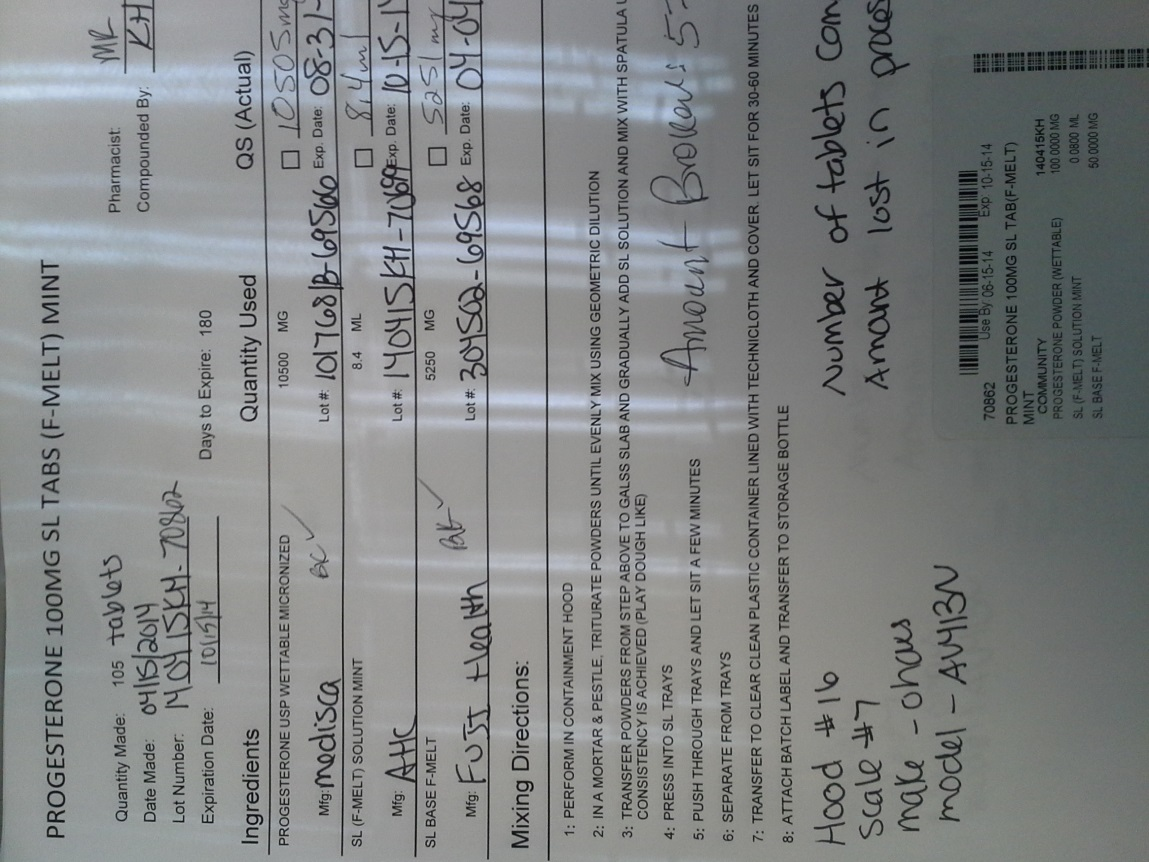 PROGESTERONE 100MG SL TABS (F-MELT) MINT
Quantity Made: 105 tablets
Date Made: 04/15/2014
Lot Number: 140415KH-70862
Expiration Date: 10/15/14 Days to Expire: 180
Pharmacist: MR
Compounded By: KH
Ingredients Quantity Used QS (Actual)
PROGESTERONE USP WETTABLE MICRONIZED 10500 MG 10505mg
Mfg: medisca Lot #: Exp. Date: 08-31-
SL (F-MELT) SOLUTION MINT 8.4 ML 8.4ml
Mfg: AHC Lot #: Exp. Date: 10-15-1
SL BASE F-MELT 5250 MG 5251 mg
Mfg: Fuji Health Lot #: 304502-69568 Exp. Date: 04-04
Mixing Directions:
1: PERFORM IN CONTAINMENT HOOD
2: IN A MORTAR & PESTLE, TRITURATE POWDERS UNTIL EVENLY MIX USING GEOMETRIC DILUTION
3: TRANSFER POWDERS FROM STEP ABOVE TO GALSS SLAB AND GRADUALLY ADD SL SOLUTION AND MIX WITH SPATULA U
CONSISTENCY IS ACHIEVED (PLAY DOUGH LIKE)
4: PRESS INTO SL TRAYS
5: PUSH THROUGH TRAYS AND LET SIT A FEW MINUTES
6: SEPARATE FROM TRAYS
Amount Broken: 5
7: TRANSFER TO CLEAR CLEAN PLASTIC CONTAINER LINED WITH TECHNICLOTH AND COVER. LET SIT FOR 30-60 MINUTES
8: ATTACH BATCH LABEL AND TRANSFER TO STORAGE BOTTLE
Hood #16
Scale #7
make - ohaus
model - AV413N
Number of tablets Com
Amount lost in proces
70862 Use By 06-15-14 Exp: 10-15-14
PROGESTERONE 100MG SL TAB(F-MELT)
MINT
COMMUNITY 140415KH
PROGESTERONE POWDER (WETTABLE) 100.0000 MG
SL (F-MELT) SOLUTION MINT 0.0800 ML
SL BASE F-MELT 50.0000 MG